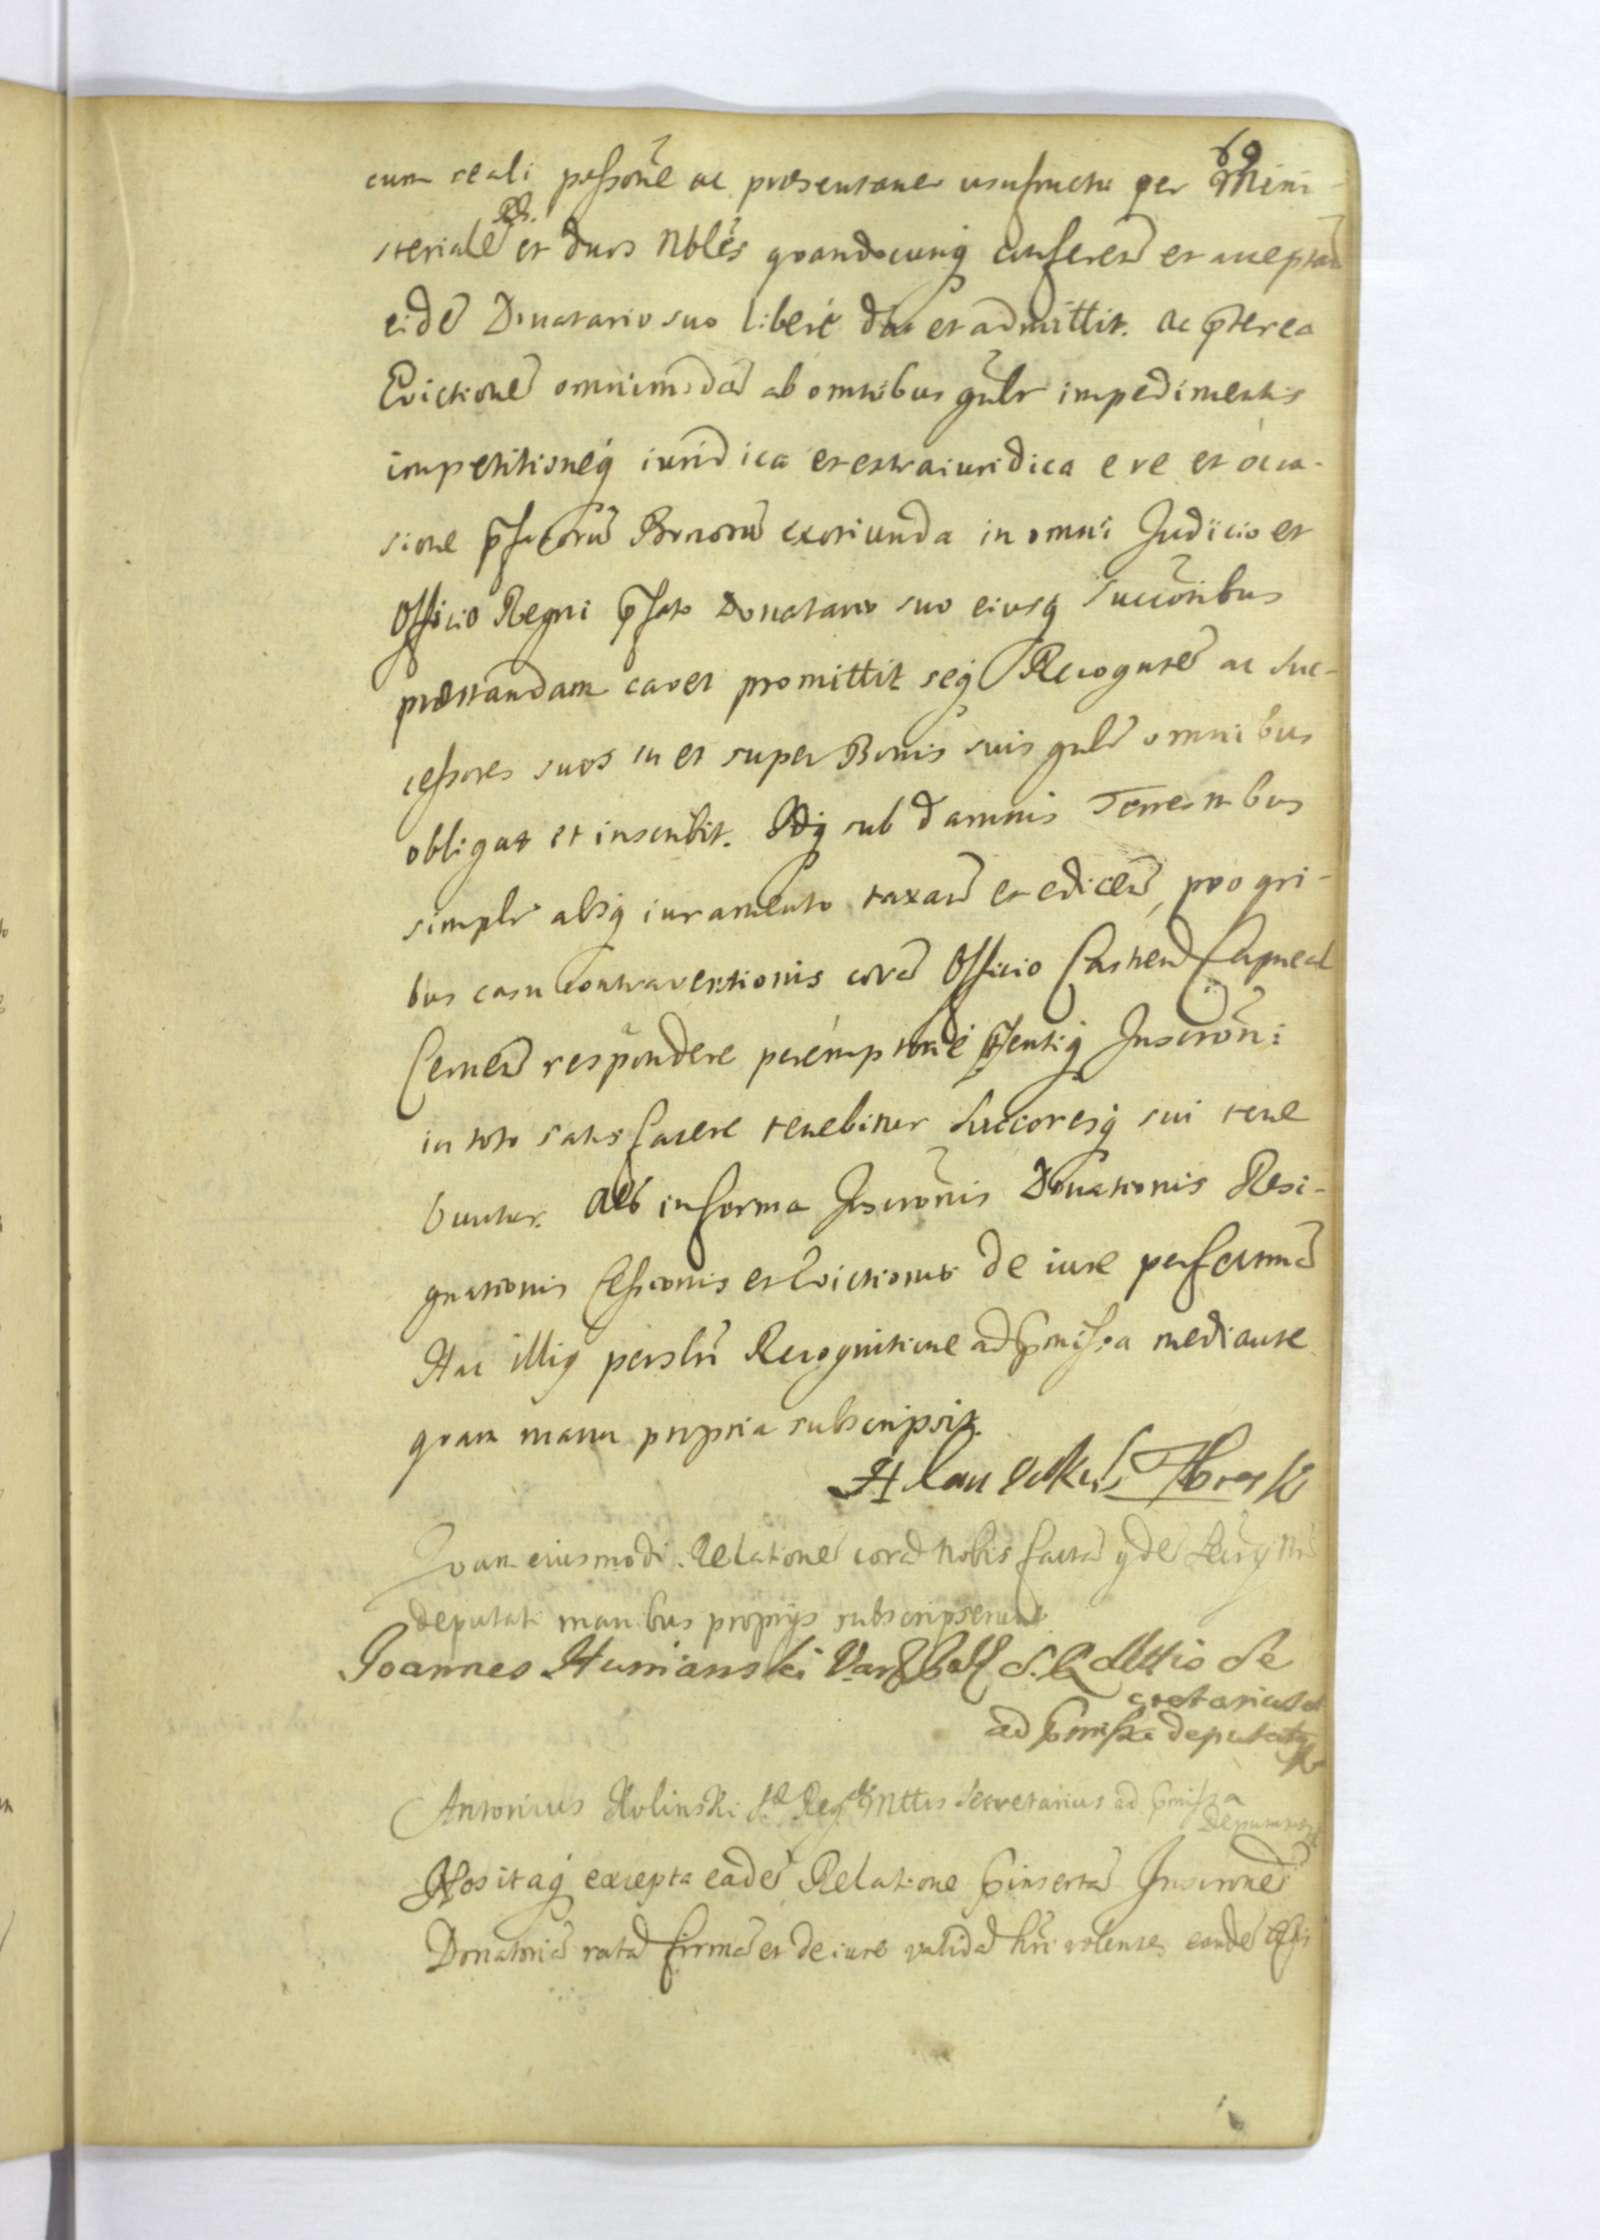 69
cum reali possõne ac præsentaneo usufructu per Mini-
sterialẽ Rñ. et duos Nbles quandocunq conferen̄ et acceptan̄
eidẽ Donatario suo liberè dat et admittit. ac p̄terea
Evictionẽ omnimodã ab omnibus gñlr impedimentis
impetitioneq iuridica et extraiuridica e re et occa-
sione p̄fatorũ Bonorũ exoriunda in omni Judicio et
Officio Regni p̄fato Donatario suo eiusq Succõribus
præstandam cavet promittit seq Recognten̄ ac Suc-
cessores suos in et super Bonis suis gñlr omnibus
obligat et inscribit. Idq sub damnis Terrestribus
simplr absq iuramento taxan̄ et edicen̄, pro qri-
bus casu contraventionis corã Officio Castren̄ Capneal
Cernen̄ respondere peremptorie p̄sentiq Inscrõni
in toto satisfacere tenebitur Succoresq sui tene
buntur. in forma Inscrõnis Donationis Resi-
gnationis Cessionis et Evictionis de iure perfectiss
Hac illiq perslri Recognitione ad p̄missa mediante
quam manu propria subscripsit.
Quam eiusmodi Relationẽ corã Nobis factã ydẽ Secrrij Nri
deputati manibus proprijs subscripserunt
Joannes Humanski
cretarius
ad p̄missa deputatq
Antonius Holinski Sæ Regæ Mttis Secretarius ad p̄missa
deputatq
Nos itaq excepta eadẽ Relatione p̄insertã Inscronẽ
Donatoriã ratã firmã et de iure validã hri volentes eandẽ